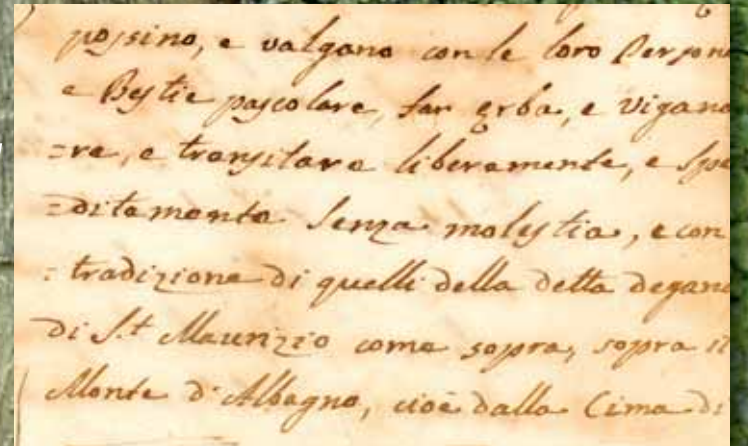 possino, e valgano con le loro Person
e Bestie pascolare, far erba, e Vigana
=re, e transitare liberamente, e Spe
=ditamente Senza molestia, e con
=tradizione di quelli della detta degan
di S.t Maurizio come sopra, sopra il
Monte d'Albagno, cioè dalla Cima di